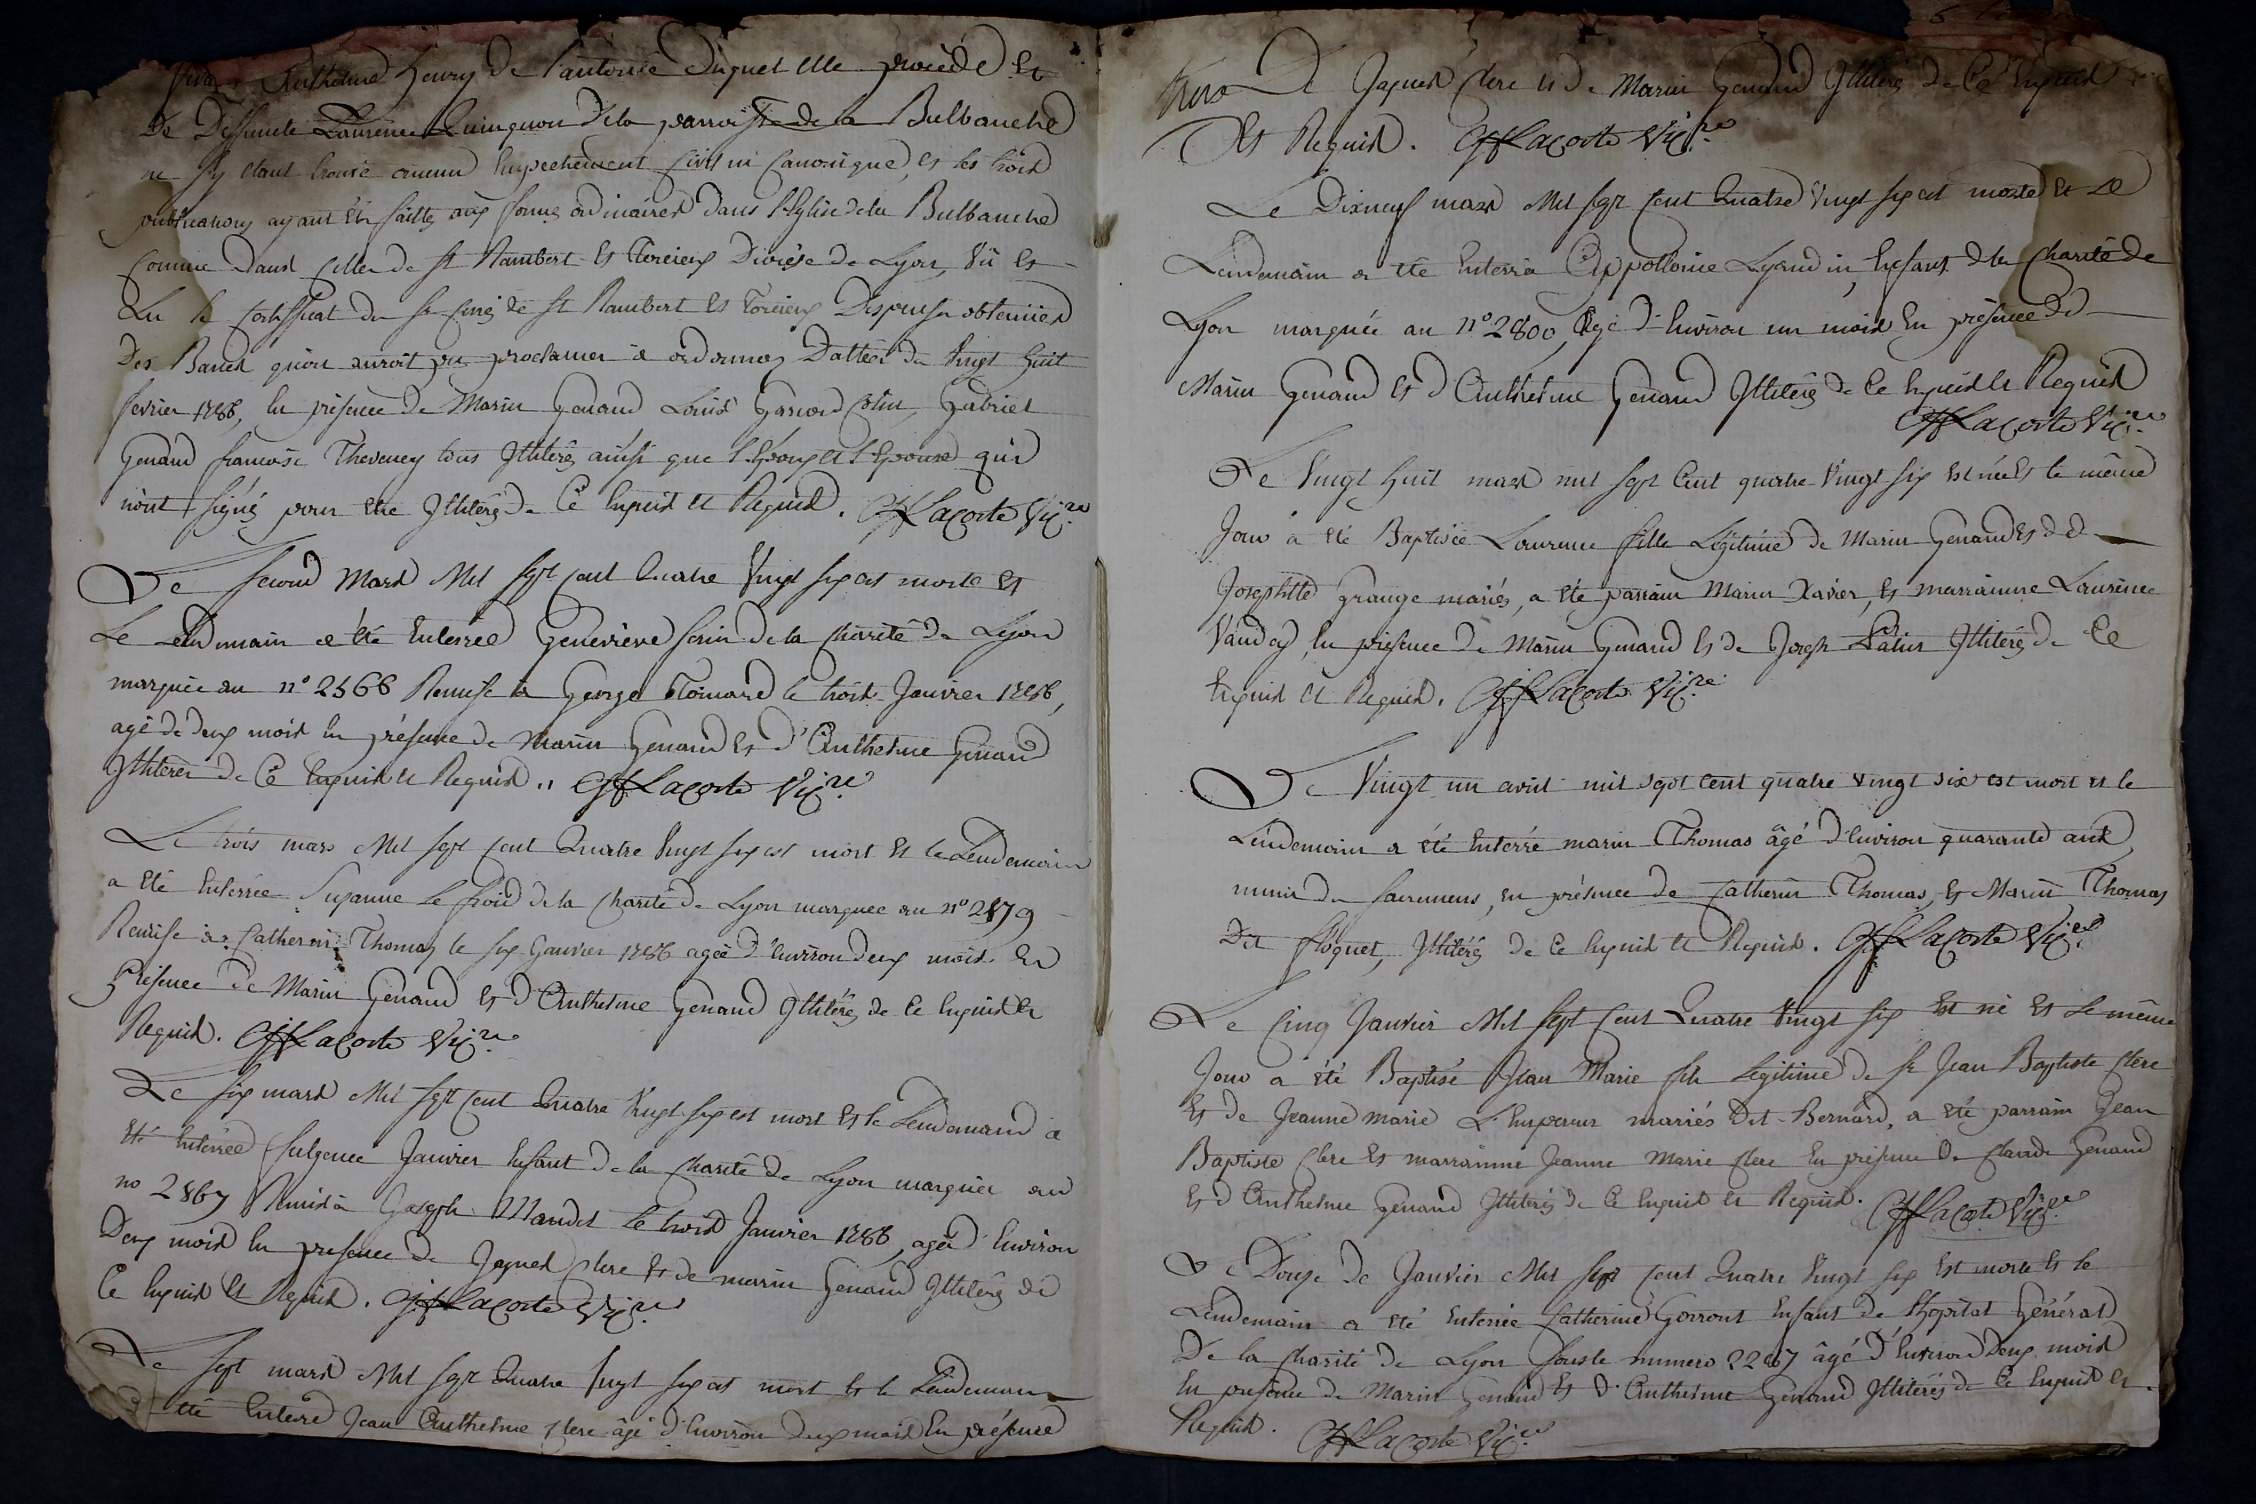 Anthelme henry de l'autorité duquel elle procède et
De Deffuncte Laurence Quinquon De la parroisse de la Bulbanche
ne s'y étant trouvé aucun Empechement civil ni canonique, et les trois
publications ayant été faittes aux formes ordinaires dans l'Eglise de la Bulbanche
comme dans celle de st Rambert et Torcieux Diocèse de Lyon, vû et
Lu le certifficat du sr curé de st Rambert et Torcieux Dispense obtenües
Des Bancs qu'on auroit pu proclamer à ordonner Dattée du vingt huit
fevrier 1786, en présence de Marin Genand Louis Colin, Gabriel
Genand francoise Theveney tous Illiterés ainsi que l'Epoux et l'Epouse qui
n'ont signés pour etre Illiterés De Ce Enquis et Requis. Lacoste Vicre
Le second Mars Mil sept cent Quatre Vingt six est morte et
Le Lendemain a été Enterrée Geneviève de la charité De Lyon
marquée au n° 2566 Remise à George Thomas le trois Janvier 1786,
agé de deux mois En présence de Marin Genand et d'Anthelme Genand
Illiterés de Ce Enquis et Requis. Lacoste Vicre
Le trois mars Mil sept cent Quatre Vingt six est mort Et le Lendemain
a été Enterrée Susanne Le froid de la Charité de Lyon marquée au n° 2879
Remise à Catherine Thomas le six Janvier 1786 agée d'Environ deux mois En
Présence de Marin Genand et d'Anthelme Genand Illiterés de Ce Enquis et
Requis. Lacoste Vicre
Le six mars Mil sept cent Quatre Vingt six est mort et le Lendemain a
été Enterrée fulgence Janvier Enfant de la charité de Lyon marquée au
no 2867 Remis à Joseph Mandet Le trois Janvier 1786, agé d'Environ
Deux mois En présence de Jaques Clere et de marin Genand Illiterés de
Ce Enquis et Requis. Lacoste Vicre
Le sept mars Mil sept Quatre Vingt six est mort et le Lendemain
a été Enterré Jean Anthelme Clere âgé d'Environ deux mois En présence
De Jaques Clere et de Marin Genand Illiterés de Ce Enquis
Et Requis. Lacoste Vicre
Le Dixneuf mars Mil sept cent Quatre Vingt six est morte et Le
Lendemain a été Enterrée Appollonie Enfant de la Charité de
Lyon marquée au n° 2800, Agé d'Environ un mois En présence de
Marin Genand et d'Anthelme Genand Illiterés de Ce Enquis et Requis
Lacoste Vicre
Le Vingt huit mars mil sept Cent quatre Vingt six est née et le même
Jour a été Baptisée Laurence fille Légitime de Marin Genand et de
Josephtte Grange mariés, a été parrain Marin Xavier, et marrainne Laurence
Vaudey, En présence de Marin Genand et de Joseph Illiterés de Ce
Enquis et Requis. Lacoste Vicre
Le Vingt un avril mil sept cent quatre vingt six est mort et le
Lendemain a été Enterré marin Thomas âgé d'Environ quarante ans
munis des sacremens, en présence de Catherin Thomas, et Marin Thomas
Dit floquet, Illiterés de Ce Enquis et Requis. Lacoste Vicre
Le Cinq Janvier Mil sept Cent Quatre Vingt six Est né Et Le même
Jour a été Baptisé Jean Marie fils Légitime de sr Jean Baptiste Clere
Et de Jeanne marie L'Empereur mariés Dit Bernard, a été parrain Jean
Baptiste Clere Et marrainne Jeanne Marie Clere En présence De Claude Genand
Et d'Anthelme Genand Illiterés de Ce Enquis et Requis. Lacoste Vicre
Le Douze De Janvier Mil sept Cent Quatre Vingt six Est morte Et le
Lendemain a été Enterrée Catherine Gorront Enfant de l'hopital Général
De la Charité de Lyon sous le numero 2267 âgé d'Environ Deux mois
En présence de Marin Genand Et d'Anthelme Genand Illiterés de Ce Enquis et
Requis. Lacoste Vicre